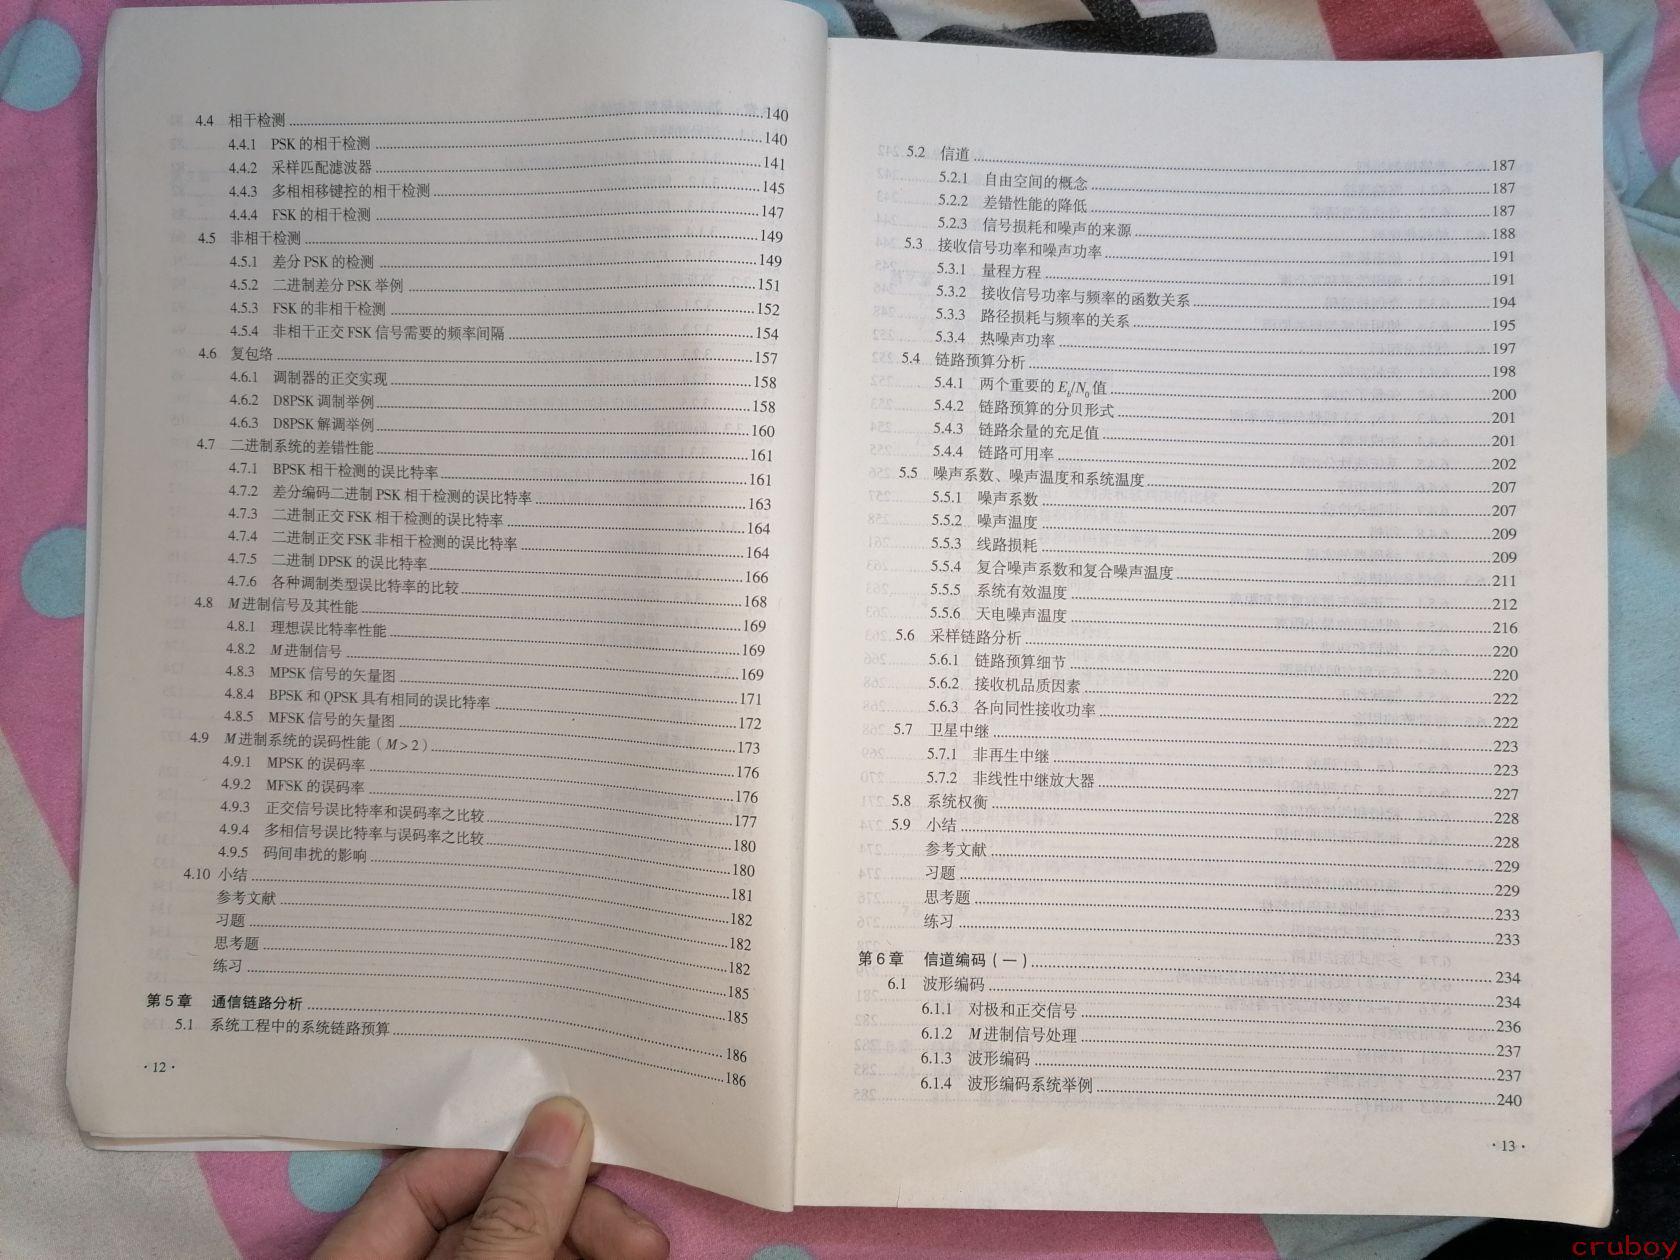 4.4 相干检测 140
4.4.1 PSK的相干检测 140
4.4.2 采样匹配滤波器 141
4.4.3 多相相移键控的相干检测 145
4.4.4 FSK的相干检测 147
4.5 非相干检测 149
4.5.1 差分PSK的检测 149
4.5.2 二进制差分PSK举例 151
4.5.3 FSK的非相干检测 152
4.5.4 非相干正交FSK信号需要的频率间隔 154
4.6 复包络 157
4.6.1 调制器的正交实现 158
4.6.2 D8PSK调制举例 158
4.6.3 D8PSK解调举例 160
4.7 二进制系统的差错性能 161
4.7.1 BPSK相干检测的误比特率 161
4.7.2 差分编码二进制PSK相干检测的误比特率 163
4.7.3 二进制正交FSK相干检测的误比特率 164
4.7.4 二进制正交FSK非相干检测的误比特率 164
4.7.5 二进制DPSK的误比特率 166
4.7.6 各种调制类型误比特率的比较 168
4.8 M进制信号及其性能 169
4.8.1 理想误比特率性能 169
4.8.2 M进制信号 169
4.8.3 MPSK信号的矢量图 171
4.8.4 BPSK和QPSK具有相同的误比特率 172
4.8.5 MFSK信号的矢量图 173
4.9 M进制系统的误码性能（M>2） 176
4.9.1 MPSK的误码率 176
4.9.2 MFSK的误码率 177
4.9.3 正交信号误比特率和误码率之比较 180
4.9.4 多相信号误比特率与误码率之比较 180
4.9.5 码间串扰的影响 181
4.10 小结 182
参考文献 182
习题 182
思考题 185
练习 185
第5章 通信链路分析 186
5.1 系统工程中的系统链路预算 186
·12·
5.2 信道 187
5.2.1 自由空间的概念 187
5.2.2 差错性能的降低 187
5.2.3 信号损耗和噪声的来源 188
5.3 接收信号功率和噪声功率 191
5.3.1 量程方程 191
5.3.2 接收信号功率与频率的函数关系 194
5.3.3 路径损耗与频率的关系 195
5.3.4 热噪声功率 197
5.4 链路预算分析 198
5.4.1 两个重要的Eb/N0值 200
5.4.2 链路预算的分贝形式 201
5.4.3 链路余量的充足值 201
5.4.4 链路可用率 202
5.5 噪声系数、噪声温度和系统温度 207
5.5.1 噪声系数 207
5.5.2 噪声温度 209
5.5.3 线路损耗 209
5.5.4 复合噪声系数和复合噪声温度 211
5.5.5 系统有效温度 212
5.5.6 天电噪声温度 216
5.6 采样链路分析 220
5.6.1 链路预算细节 220
5.6.2 接收机品质因素 222
5.6.3 各向同性接收功率 222
5.7 卫星中继 223
5.7.1 非再生中继 223
5.7.2 非线性中继放大器 227
5.8 系统权衡 228
5.9 小结 228
参考文献 229
习题 229
思考题 233
练习 233
第6章 信道编码（一） 234
6.1 波形编码 234
6.1.1 对极和正交信号 236
6.1.2 M进制信号处理 237
6.1.3 波形编码 237
6.1.4 波形编码系统举例 240
·13·
cruboy